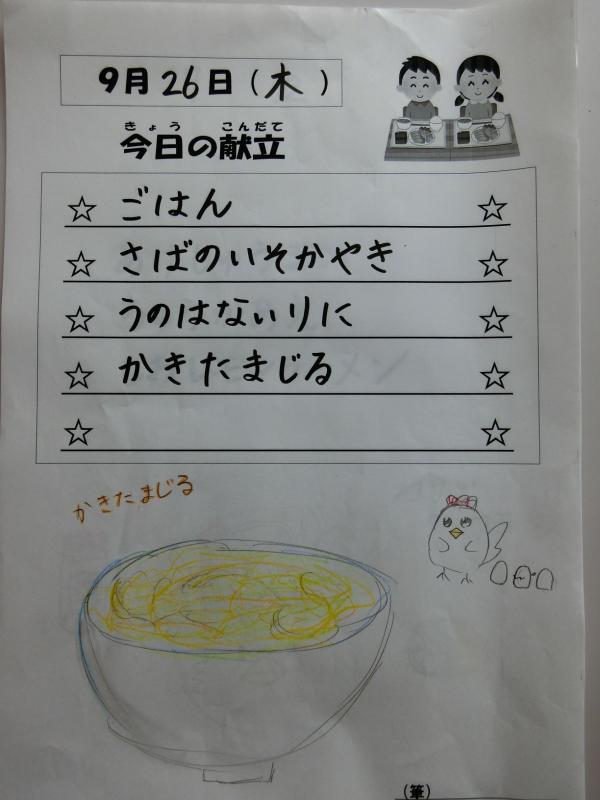 9月26日(木)
きょう こんだて
今日の献立
☆ ごはん ☆
☆ さばのいそかやき ☆
☆ うのはないりに ☆
☆ かきたまじる ☆
☆ ☆
かきたまじる
(筆)